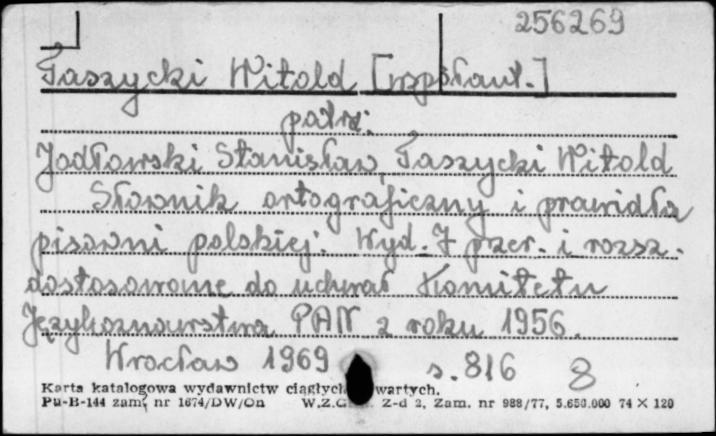 256269
Taszycki Witold [współaut.]
patrz:
Jodłowski Stanisław, Taszycki Witold
Słownik ortograficzny i prawidła
pisowni polskiej. Wyd. 7 przer. i rozsz.
dostosowane do uchwał Komitetu
Językoznawstwa PAN z roku 1956.
Wrocław 1969 s. 816 8
Karta katalogowa wydawnictw ciągłych wartych.
Pu-B-144 zam. nr 1674/DW/On W.Z.G. Z-d 2, Zam. nr 988/77, 5.650.000 74 × 120